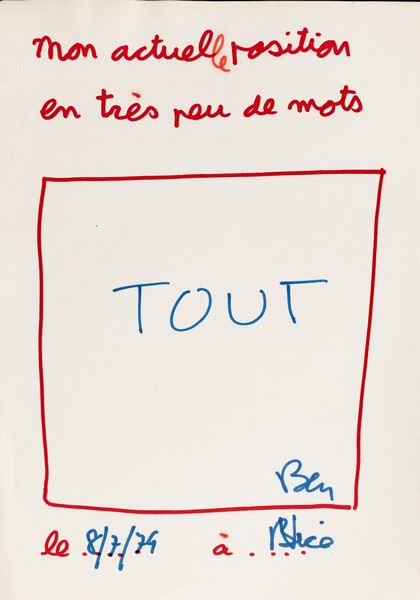 Mon actuelle position
en très peu de mots
TOUT
Ben
le 8/7/74 à Nice